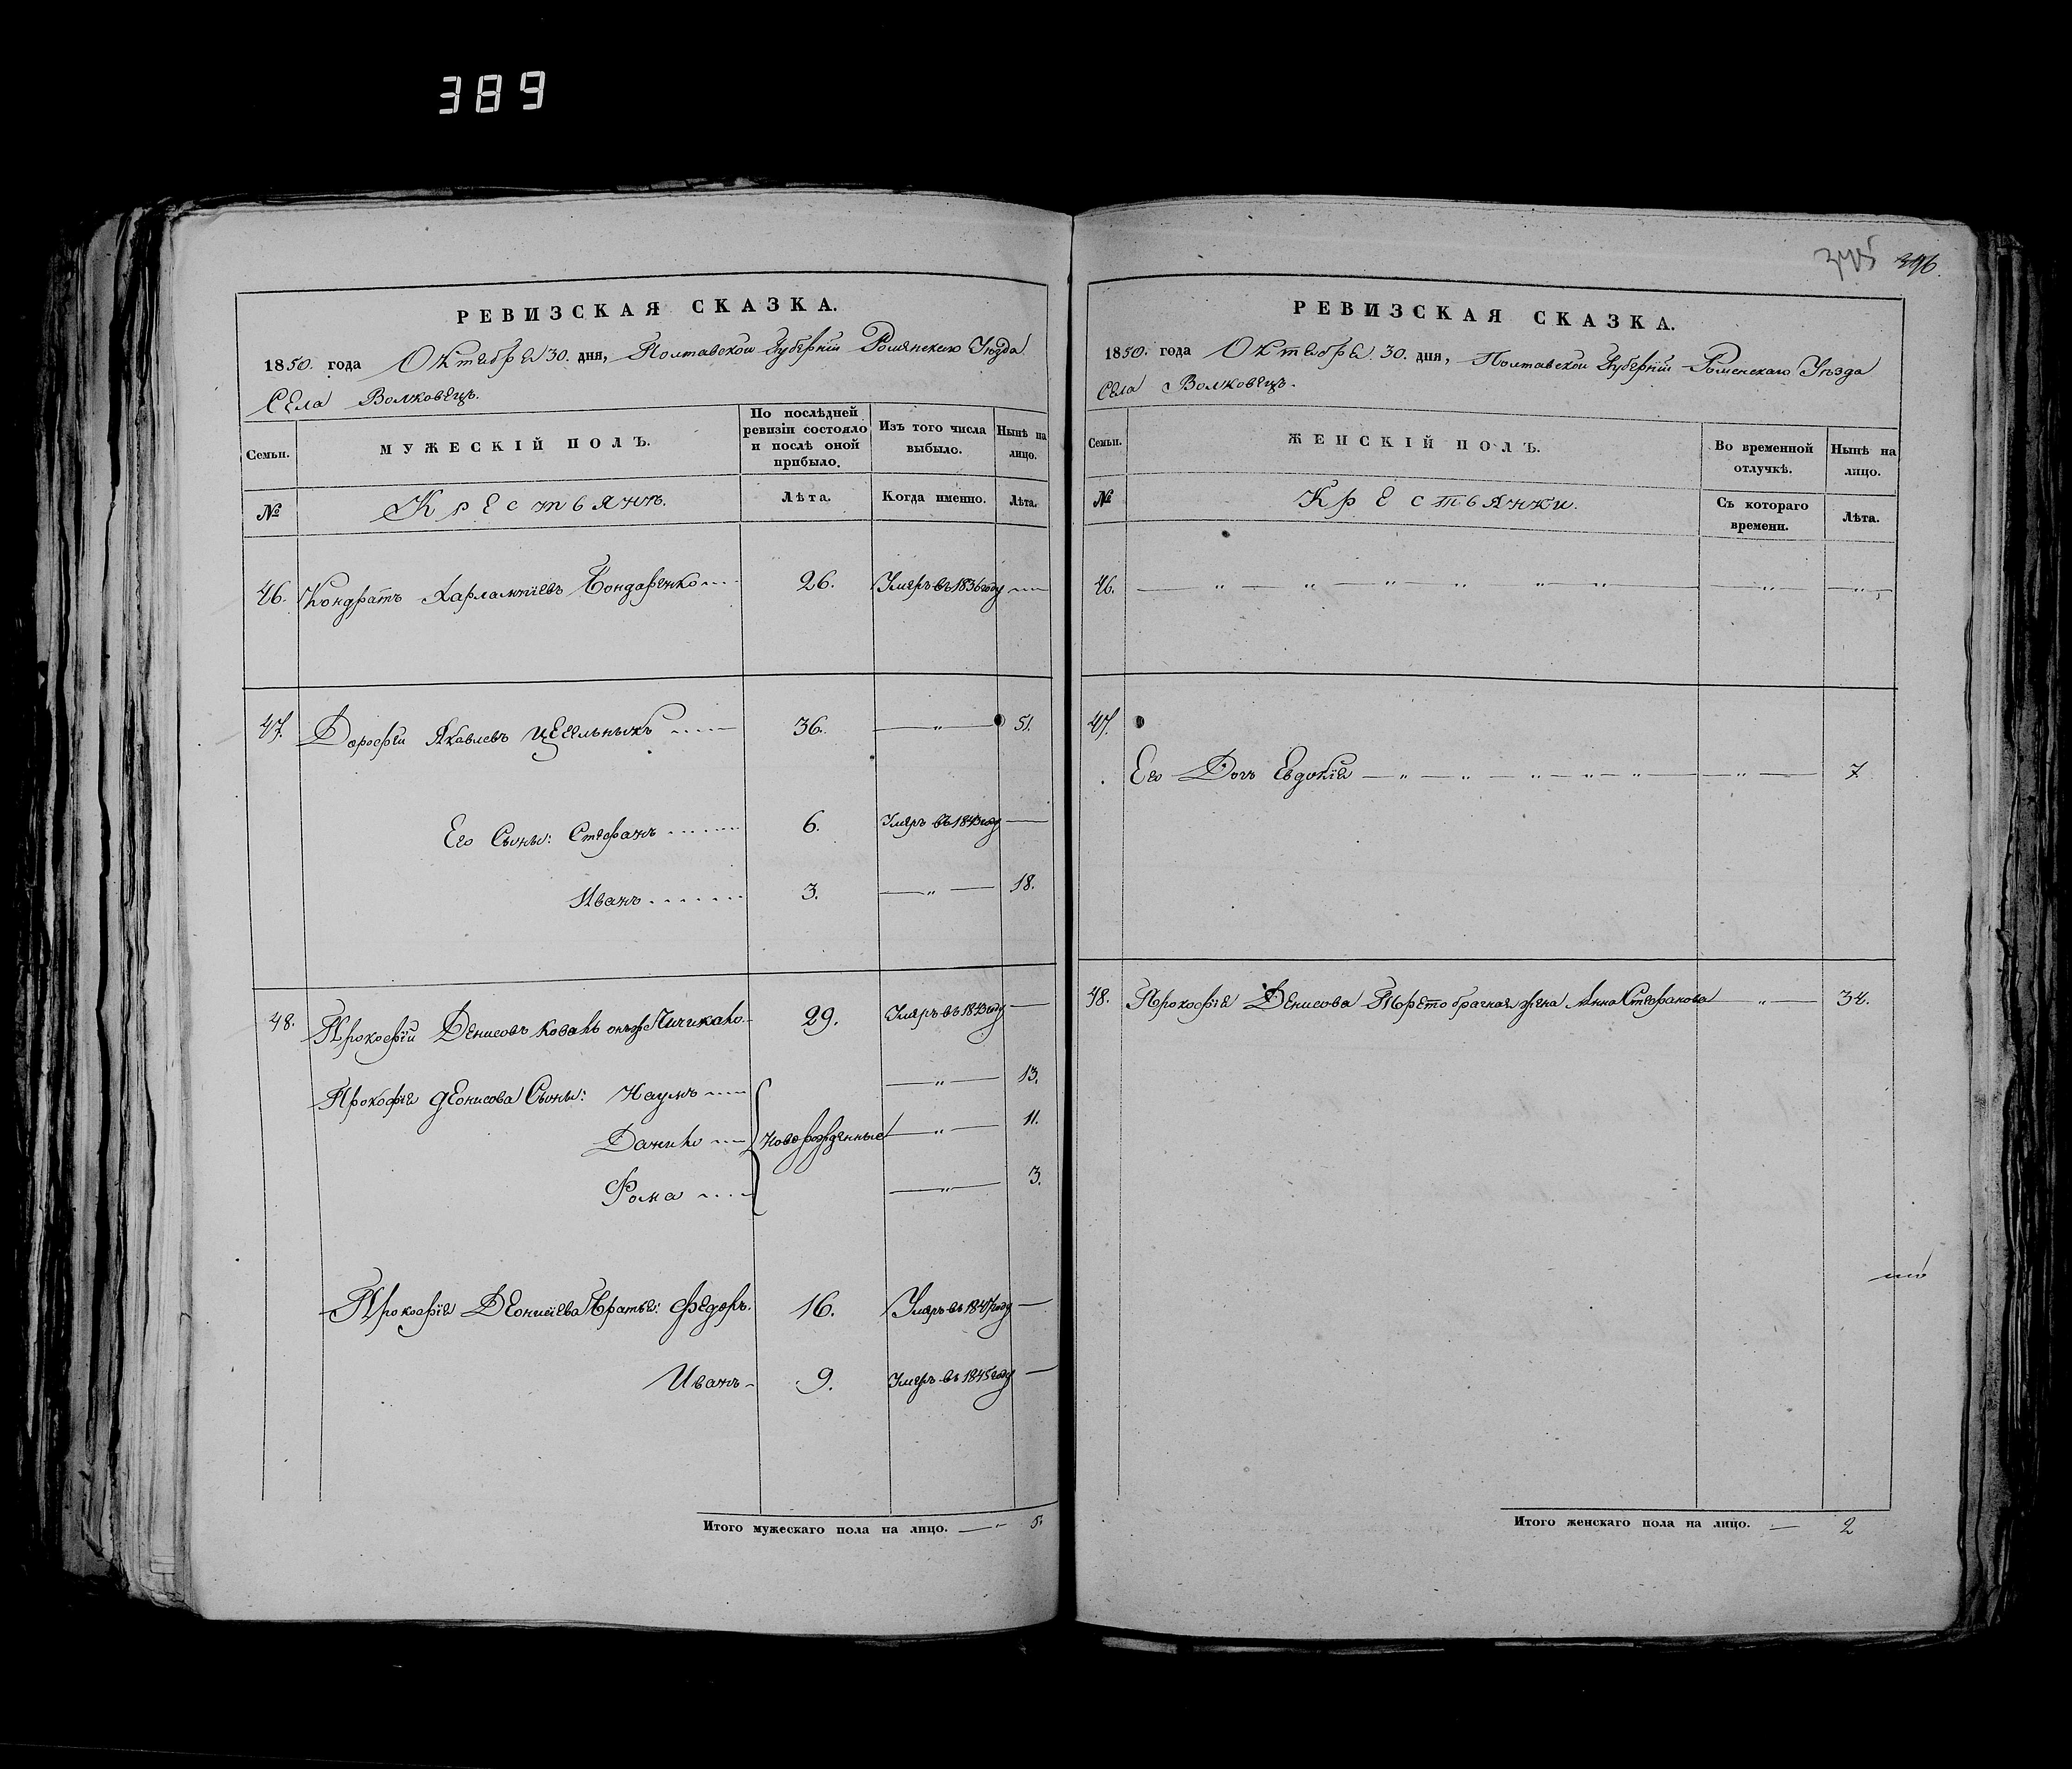 389
345 346.
РЕВИЗСКАЯ СКАЗКА.
1850. года Октября 30. дня, Полтавской Губерніи Роменскаго Уѣзда
Села Волковецъ.
Семьи.
МУЖЕСКІЙ ПОЛЪ.
По послѣдней ревизіи состояло и послѣ оной прибыло.
Изъ того числа выбыло.
Нынѣ на лицо.
№
Крестьянъ.
Лѣта.
Когда именно.
Лѣта.
46. Кондратъ Харлампіевъ Бондаренко 26. Умеръ въ 1836 году
47. Дорофей Яковлевъ 36. — „ — 51.
Его Сыны: Стефанъ 6. Умеръ въ 1843 году
Иванъ 3. — „ — 18.
48. Прокофій Денисовъ Коваль онъ жъ 29. Умеръ въ 1843 году
Прокофія Деонисова Сыны: Наумъ — „ — 13.
Данило Новорожденные — „ — 11.
Фома — „ — 3.
Прокофія Деонисіева Братья: Федоръ. 16. Умеръ въ 1847 году
Иванъ 9. Умеръ въ 1845 году
Итого мужескаго пола на лицо. 5.
РЕВИЗСКАЯ СКАЗКА.
1850. года Октября 30. дня, Полтавской Губерніи Роменскаго Уѣзда
Села Волковецъ.
Семьи.
ЖЕНСКІЙ ПОЛЪ.
Во временной отлучкѣ.
Нынѣ на лицо.
№
Крестьянки.
Съ котораго времени.
Лѣта.
46. — „ — „ — „ — „ — „ — „ — — „ — — „ —
47.
Его Дочь Евдокія — „ — „ — „ — „ — „ — — „ — 7
48. Прокофія Денисова Третобрачная жена Анна Стефанова — „ — 34.
Итого женскаго пола на лицо. — 2